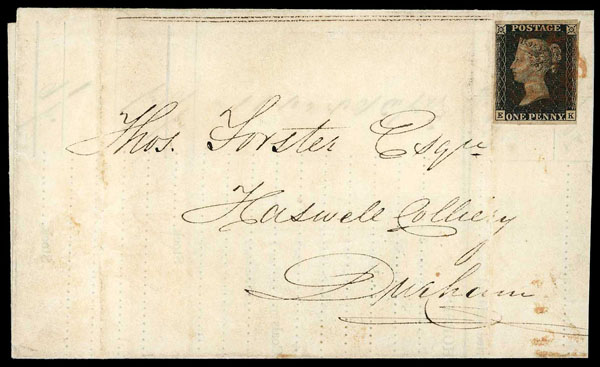 POSTAGE
E ONE PENNY K
Thos. Forster Esqre
Haswell Colliery
Durham